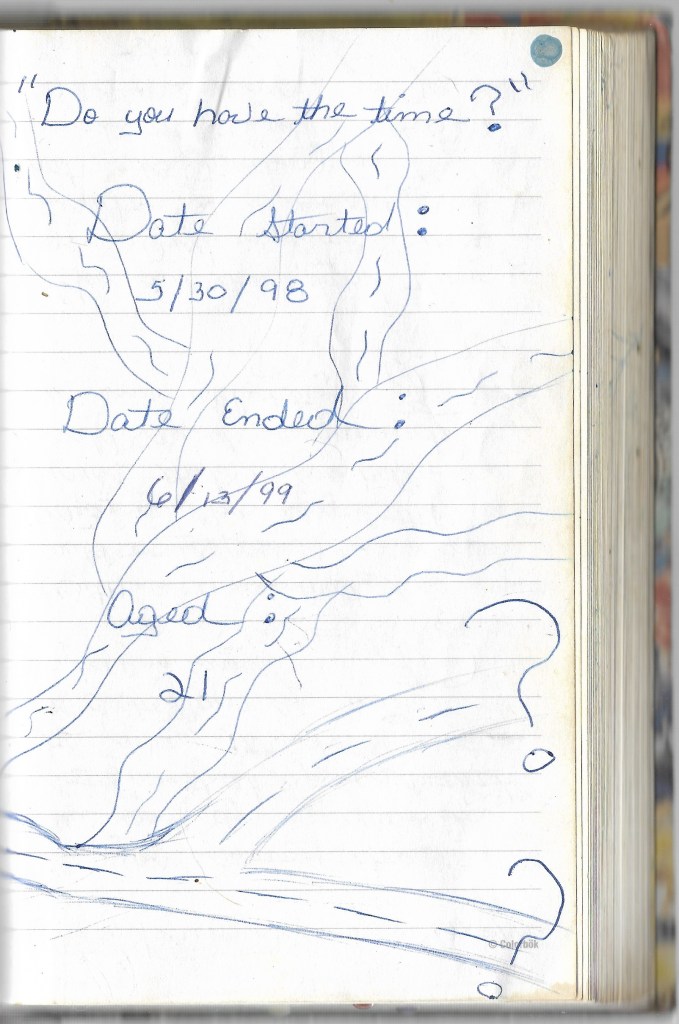 "Do you have the time?"
Date Started:
5/30/98
Date Ended:
6/13/99
Aged:
21
?
?
© Colorbök